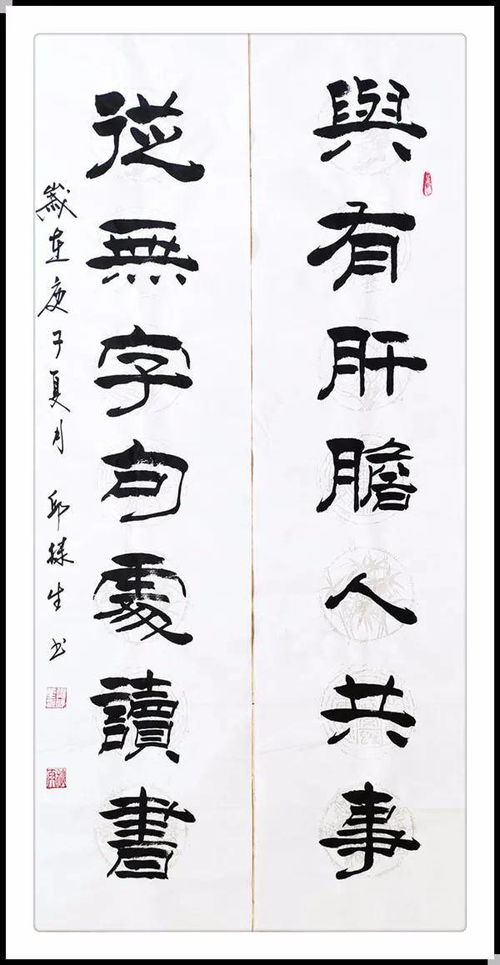 與有肝膽人共事
從無字句處讀書
歲在庚子夏月 邱禄生书